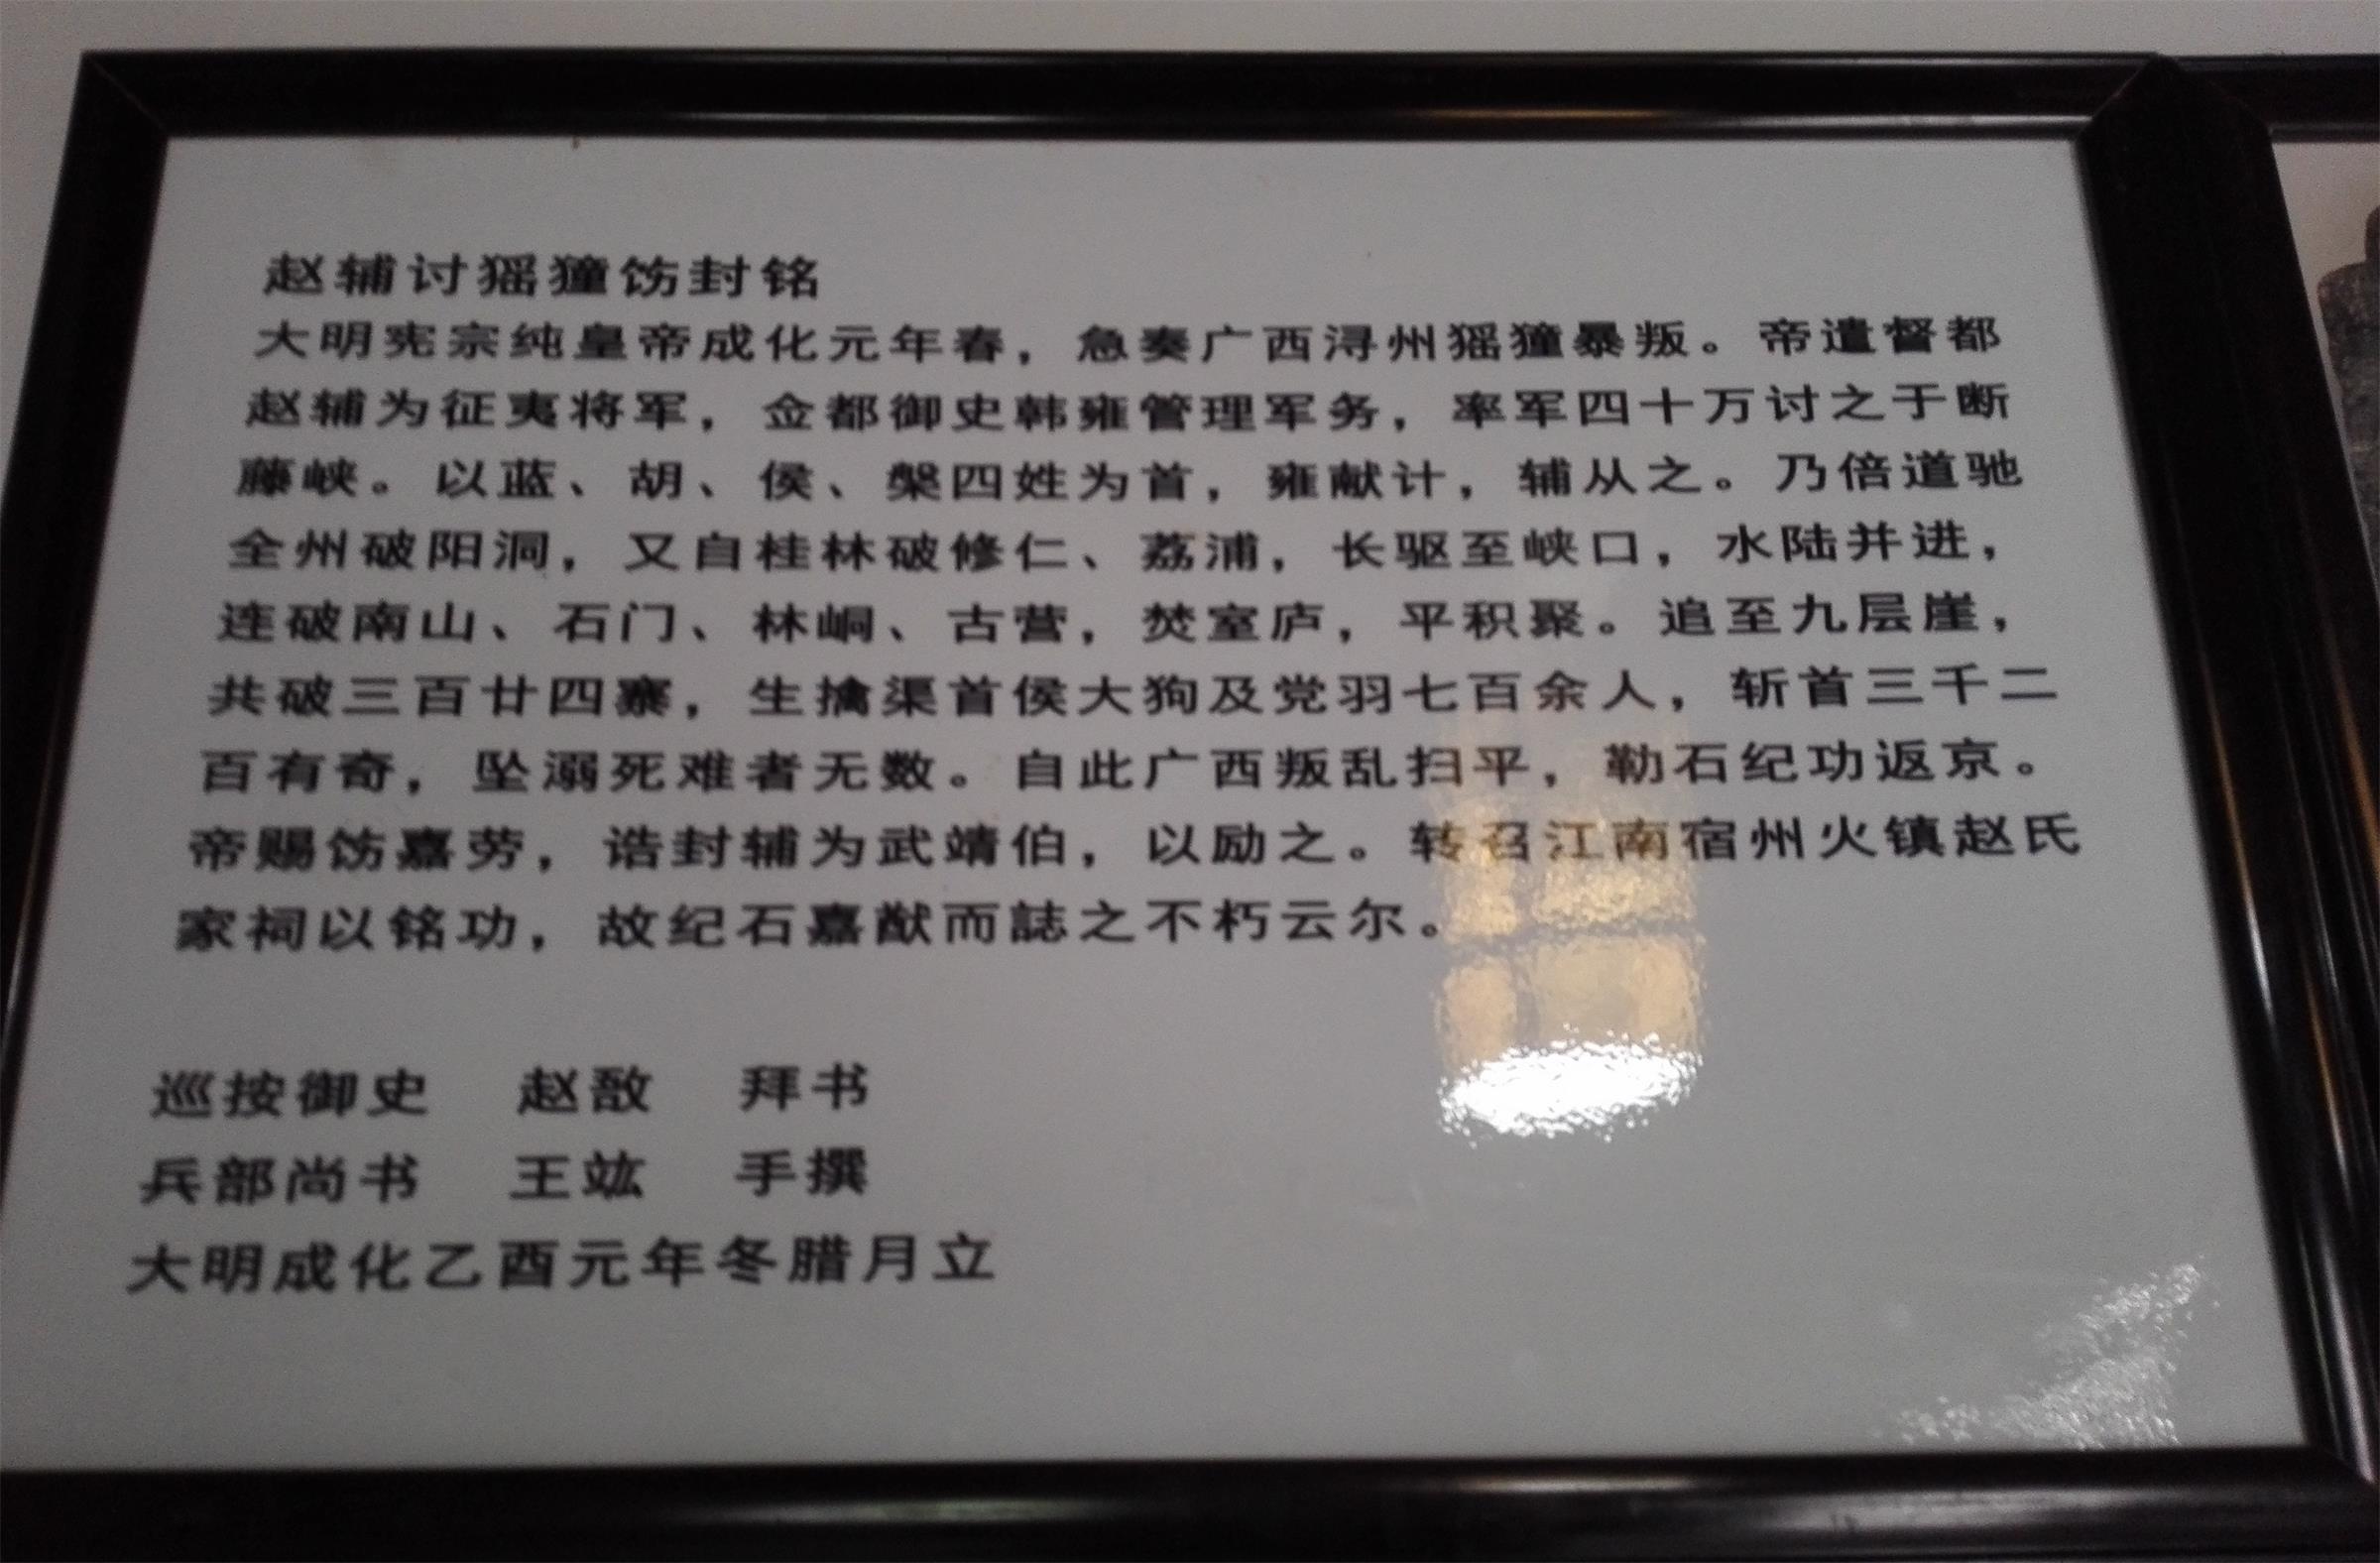 赵辅讨猺獞饬封铭
大明宪宗纯皇帝成化元年春，急奏广西浔州猺獞暴叛。帝遣督都
赵辅为征夷将军，佥都御史韩雍管理军务，率军四十万讨之于断
藤峡。以蓝、胡、侯、槃四姓为首，雍献计，辅从之。乃倍道驰
全州破阳洞，又自桂林破修仁、荔浦，长驱至峡口，水陆并进，
连破南山、石门、林峒、古营，焚室庐，平积聚。追至九层崖，
共破三百廿四寨，生擒渠首侯大狗及党羽七百余人，斩首三千二
百有奇，坠溺死难者无数。自此广西叛乱扫平，勒石纪功返京。
帝赐饬嘉劳，诰封辅为武靖伯，以励之。转召江南宿州火镇赵氏
家祠以铭功，故纪石嘉猷而誌之不朽云尔。
巡按御史 赵敔 拜书
兵部尚书 王竑 手撰
大明成化乙酉元年冬腊月立